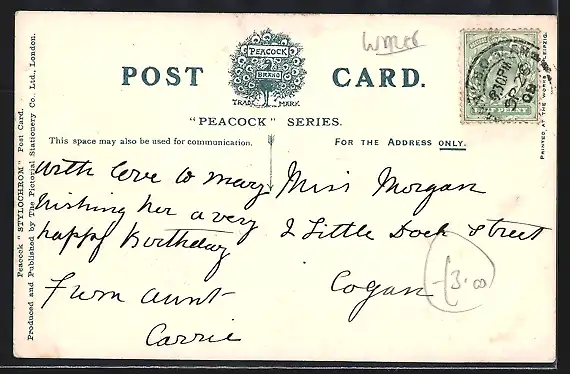 Peacock "STYLOCHROM" Post Card.
Produced and Published by The Pictorial Stationery Co. Ltd., London.
POST CARD.
PEACOCK
BRAND
TRADE MARK
"PEACOCK" SERIES.
This space may also be used for communication.
FOR THE ADDRESS ONLY.
PRINTED AT THE WORKS LEIPZIG.
8 30 PM
SP
08
With love to mary
Wishing her a very
happy Birthday
From aunt
Carrie
Miss Morgan
2 Little Dock Street
Cogan
3.00